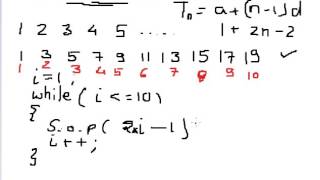 Tn = a+(n-1)d
1 2 3 4 5 ..... 1+2n-2
1 3 5 7 9 11 13 15 17 19 ✓
1 2 3 4 5 6 7 8 9 10
i=1,
while( i<=10)
{
S.o.p( 2*i-1)
i++;
}